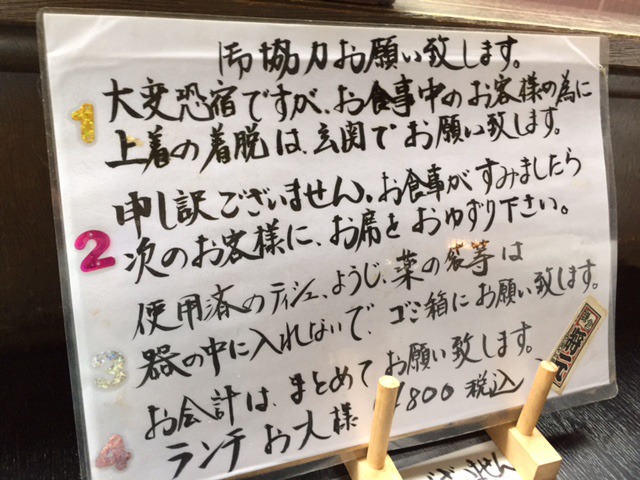 御協力お願い致します。
1 大変恐宿ですが、お食事中のお客様の為に
上着の着脱は、玄関でお願い致します。
2 申し訳ございません。お食事がすみましたら
次のお客様に、お席をおゆずり下さい。
3 使用済のティシュ、ようじ、薬の袋等は
器の中に入れないで、ゴミ箱にお願い致します。
4 お会計は、まとめてお願い致します。
ランチお一人様 800税込